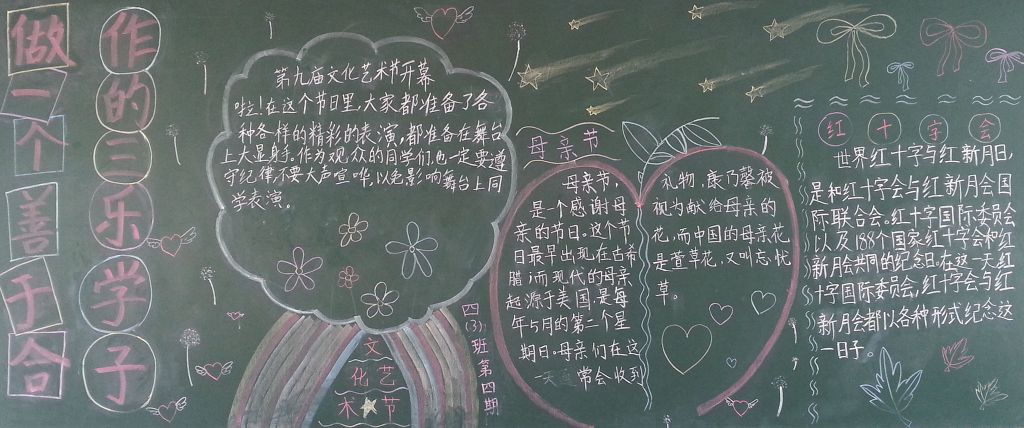 做一个善于合
作的三乐学子
第九届文化艺术节开幕
啦！在这个节日里，大家都准备了各
种各样的精彩的表演，都准备在舞台
上大显身手。作为观众的同学们，也一定要遵
守纪律，不要大声喧哗，以免影响舞台上同
学表演。
文
化艺
术节
四(3)班第四期
母亲节
母亲节，
是一个感谢母
亲的节日。这个节
日最早出现在古希
腊；而现代的母亲
起源于美国，是每
年5月的第二个星
期日。母亲们在这
一天通常会收到
礼物，康乃馨被
视为献给母亲的
花，而中国的母亲花
是萱草花，又叫忘忧
草。
红十字会
世界红十字与红新月日，
是和红十字会与红新月会国
际联合会。红十字国际委员会
以及188个国家红十字会和红
新月会共同的纪念日。在这一天红
十字国际委员会，红十字会与红
新月会都以各种形式纪念这
一日子。